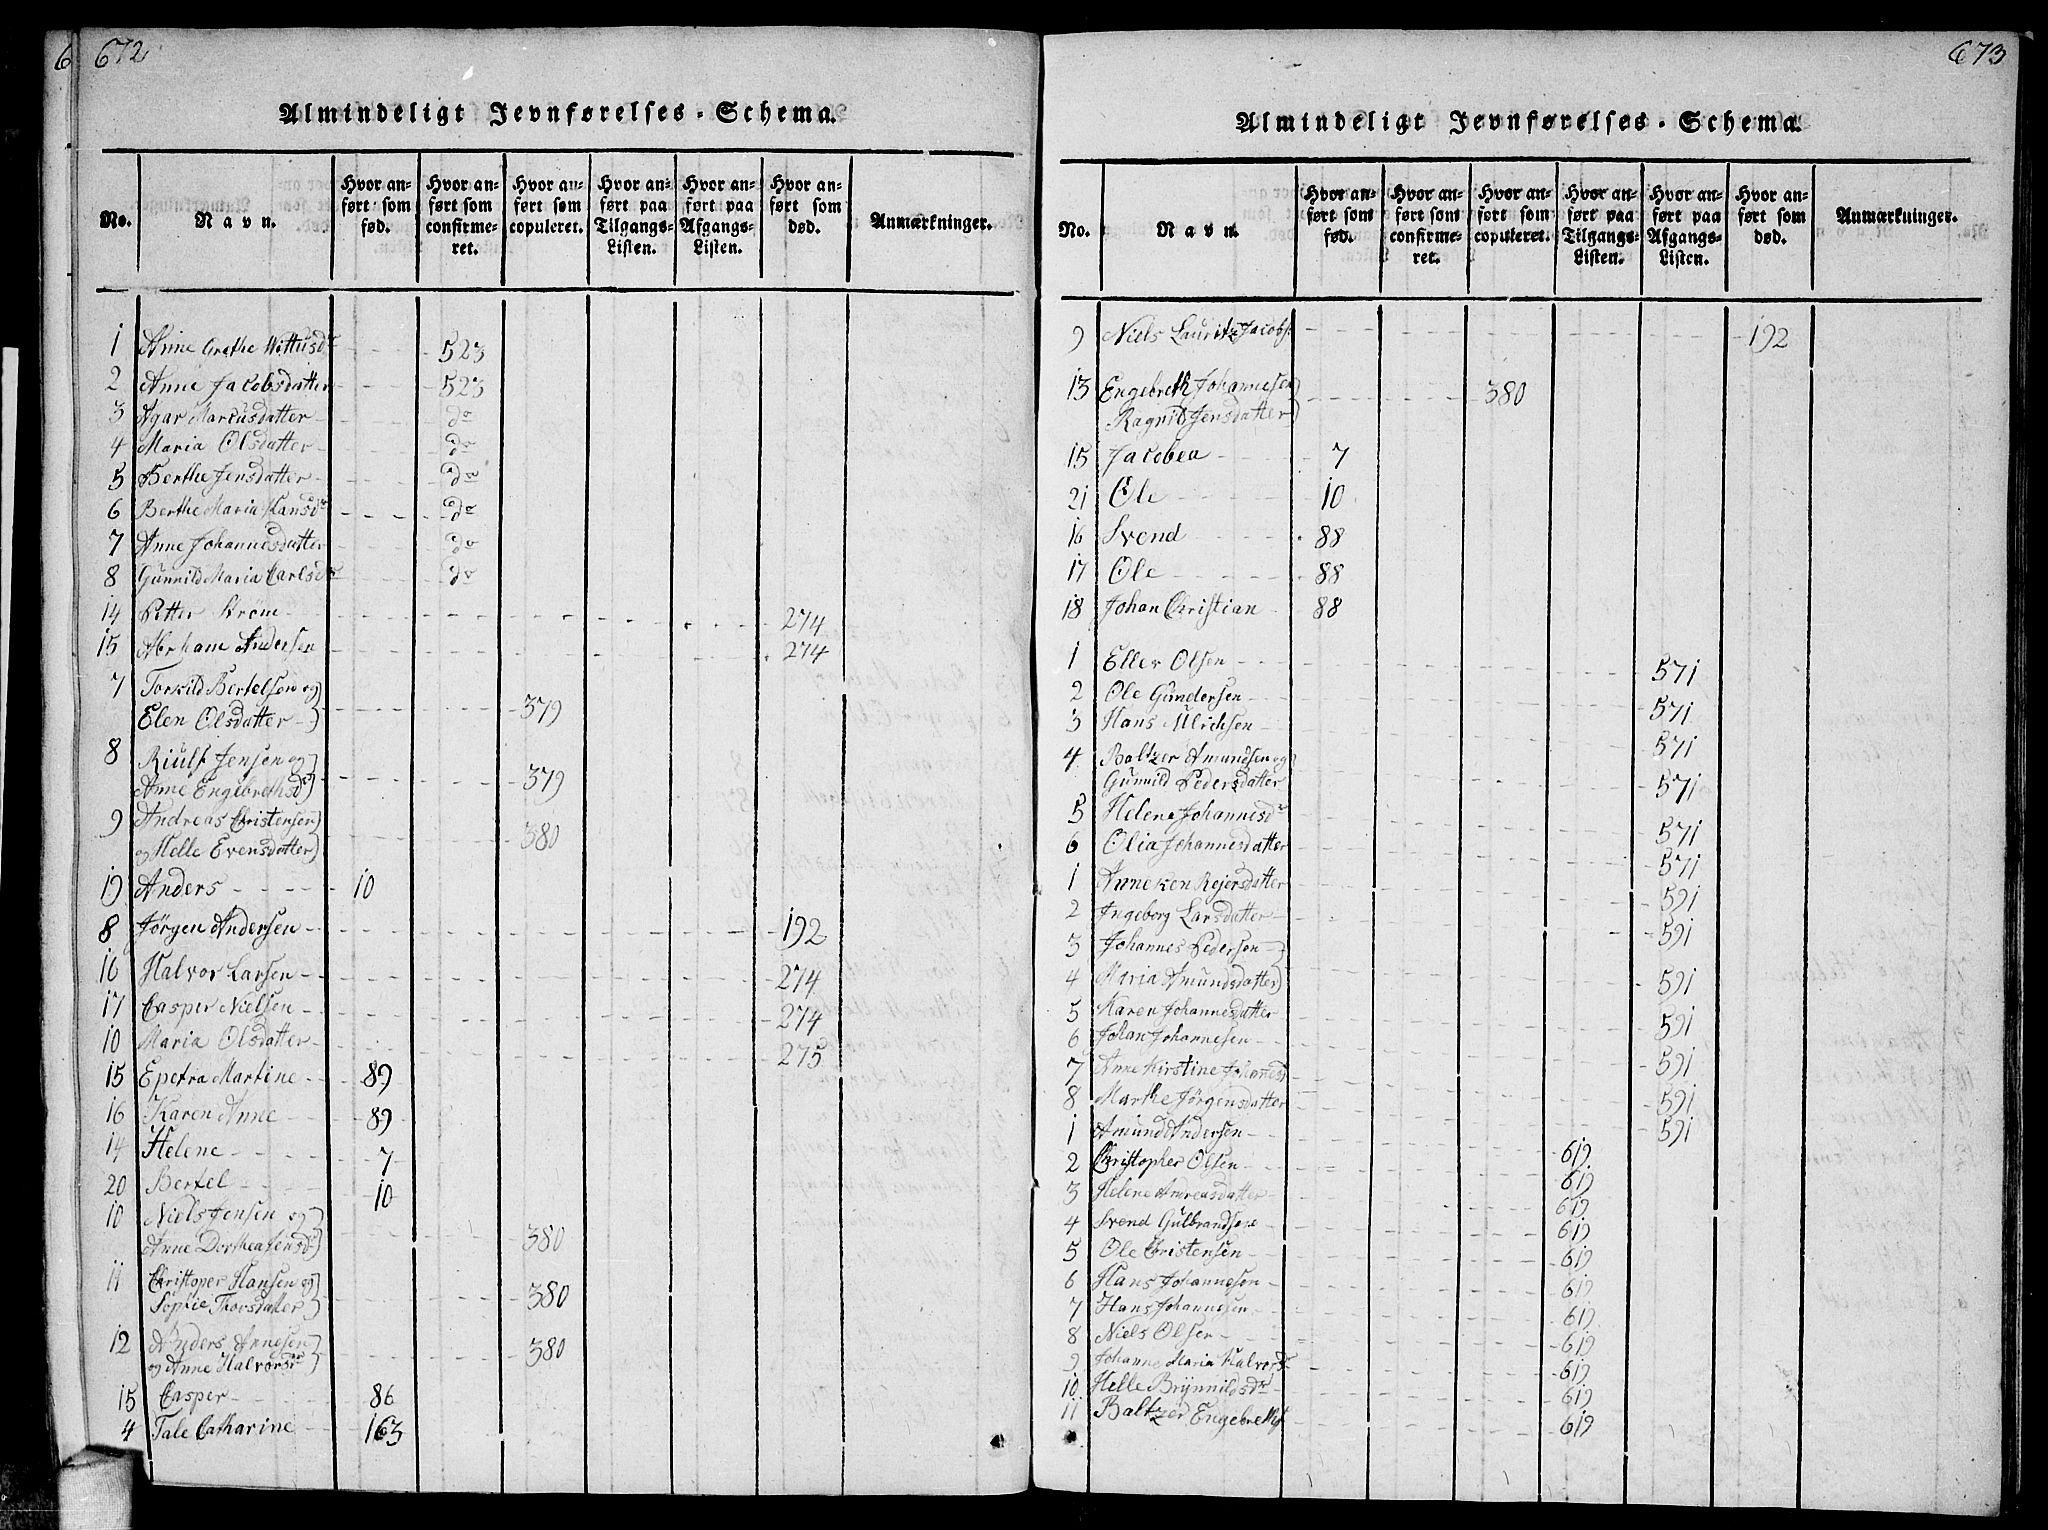 672
Almindeligt Jevnførelses-Schema.
No. Navn. Hvor anført som fød. Hvor anført som confirmeret. Hvor anført som copuleret. Hvor anført paa Tilgangs-Listen. Hvor anført paa Afgangs-Listen. Hvor anført som død. Anmærkninger.
1 Anne Grethe 523
2 Anne Jacobsdatter 523
3 Agar Marcusdatter do
4 Maria Olsdatter do
5 Berthe Jensdatter do
6 Berthe Maria Hansdr do
7 Anne Johannesdatter do
8 Gunnild Maria Carlsdr do
14 Petter Strøm 274
15 Abrham Andersen 274
7 Torkild Bertelsen og
Elen Olsdatter 379
8 Riulf Jensen og
Anne Engebrethsdr 379
9 Andreas Christensen
og Helle Evensdatter 380
19 Anders 10
8 Jørgen Andersen 192
16 Halvor Larsen 274
17 Casper Nielsen 274
10 Maria Olsdatter 275
15 Epetra Martine 89
16 Karen Anne 89
14 Helene 7
20 Bertel 10
10 Niels Jensen og
Anne Dorthea Jensdr 380
11 Christoper Hansen og
Sophie Thorsdatter 380
12 Anders Annesen
og Anne Halvorsdr 380
15 Casper 86
4 Tale Catharine 163
673
Almindeligt Jevnførelses-Schema.
No. Navn. Hvor anført som fød. Hvor anført som confirmeret. Hvor anført som copuleret. Hvor anført paa Tilgangs-Listen. Hvor anført paa Afgangs-Listen. Hvor anført som død. Anmærkninger.
9 Niels Lauritz Jacobs. 192
13 Engebreth Johannesen
Ragnild Jensdatter 380
15 Jacobea 7
21 Ole 10
16 Svend 88
17 Ole 88
18 Johan Christian 88
1 Ellev Olsen 571
2 Ole Gundersen 571
3 Hans Ulrichsen 571
4 Baltzer Amundsen og
Gunnild Pedersdatter 571
5 Helene Johannesdr 571
6 Olia Johannesdatter 571
1 Anneken Rejersdatter 591
2 Ingeborg Larsdatter 591
3 Johannes Pedersen
4 Maria Amundsdatter 591
5 Karen Johannesdatter 591
6 Johan Johannesen 591
7 Anne Kirstine 591
8 Marthe Jørgensdatter 591
1 Amund Andersen 619
2 Christopher Olsen 619
3 Helene Andreasdatter 619
4 Svend Gulbrandsen 619
5 Ole Christensen 619
6 Hans Johannesen 619
7 Hans Johannesen 619
8 Niels Olsen 619
9 Johanne Maria Halvors 619
10 Helle Brynnildsdr 619
11 Baltzer Engebreths 619